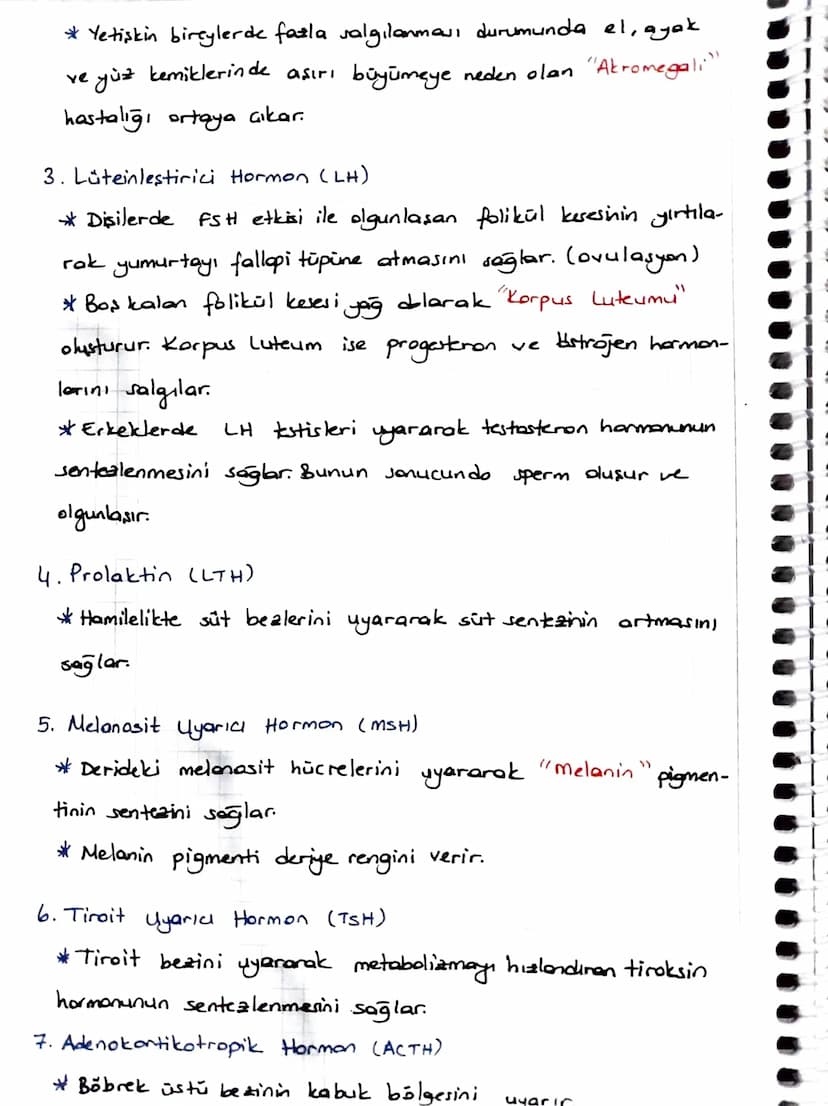 * Yetişkin bireylerde fazla salgılanması durumunda el, ayak
ve yüz kemiklerinde aşırı büyümeye neden olan "Akromegali"
hastalığı ortaya çıkar.
3. Lüteinleştirici Hormon (LH)
* Dişilerde FSH etkisi ile olgunlaşan folikül kesesinin yırtıla-
rak yumurtayı fallopi tüpüne atmasını sağlar. (ovulasyon)
* Boş kalan folikül kesesi yağ olarak "Korpus Luteumu"
oluşturur. Korpus Luteum ise progesteron ve östrojen hormon-
larını salgılar.
* Erkeklerde LH testisleri uyararak testosteron hormonunun
sentezlenmesini sağlar. Bunun sonucunda sperm oluşur ve
olgunlaşır.
4. Prolaktin (LTH)
* Hamilelikte süt bezlerini uyararak süt sentezinin artmasını
sağlar.
5. Melanosit Uyarıcı Hormon (MSH)
* Derideki melanosit hücrelerini uyararak "Melanin" pigmen-
tinin sentezini sağlar.
* Melanin pigmenti deriye rengini verir.
6. Tiroit Uyarıcı Hormon (TSH)
* Tiroit bezini uyararak metabolizmayı hızlandıran tiroksin
hormonunun sentezlenmesini sağlar.
7. Adenokortikotropik Hormon (ACTH)
* Böbrek üstü bezinin kabuk bölgesini uyarır